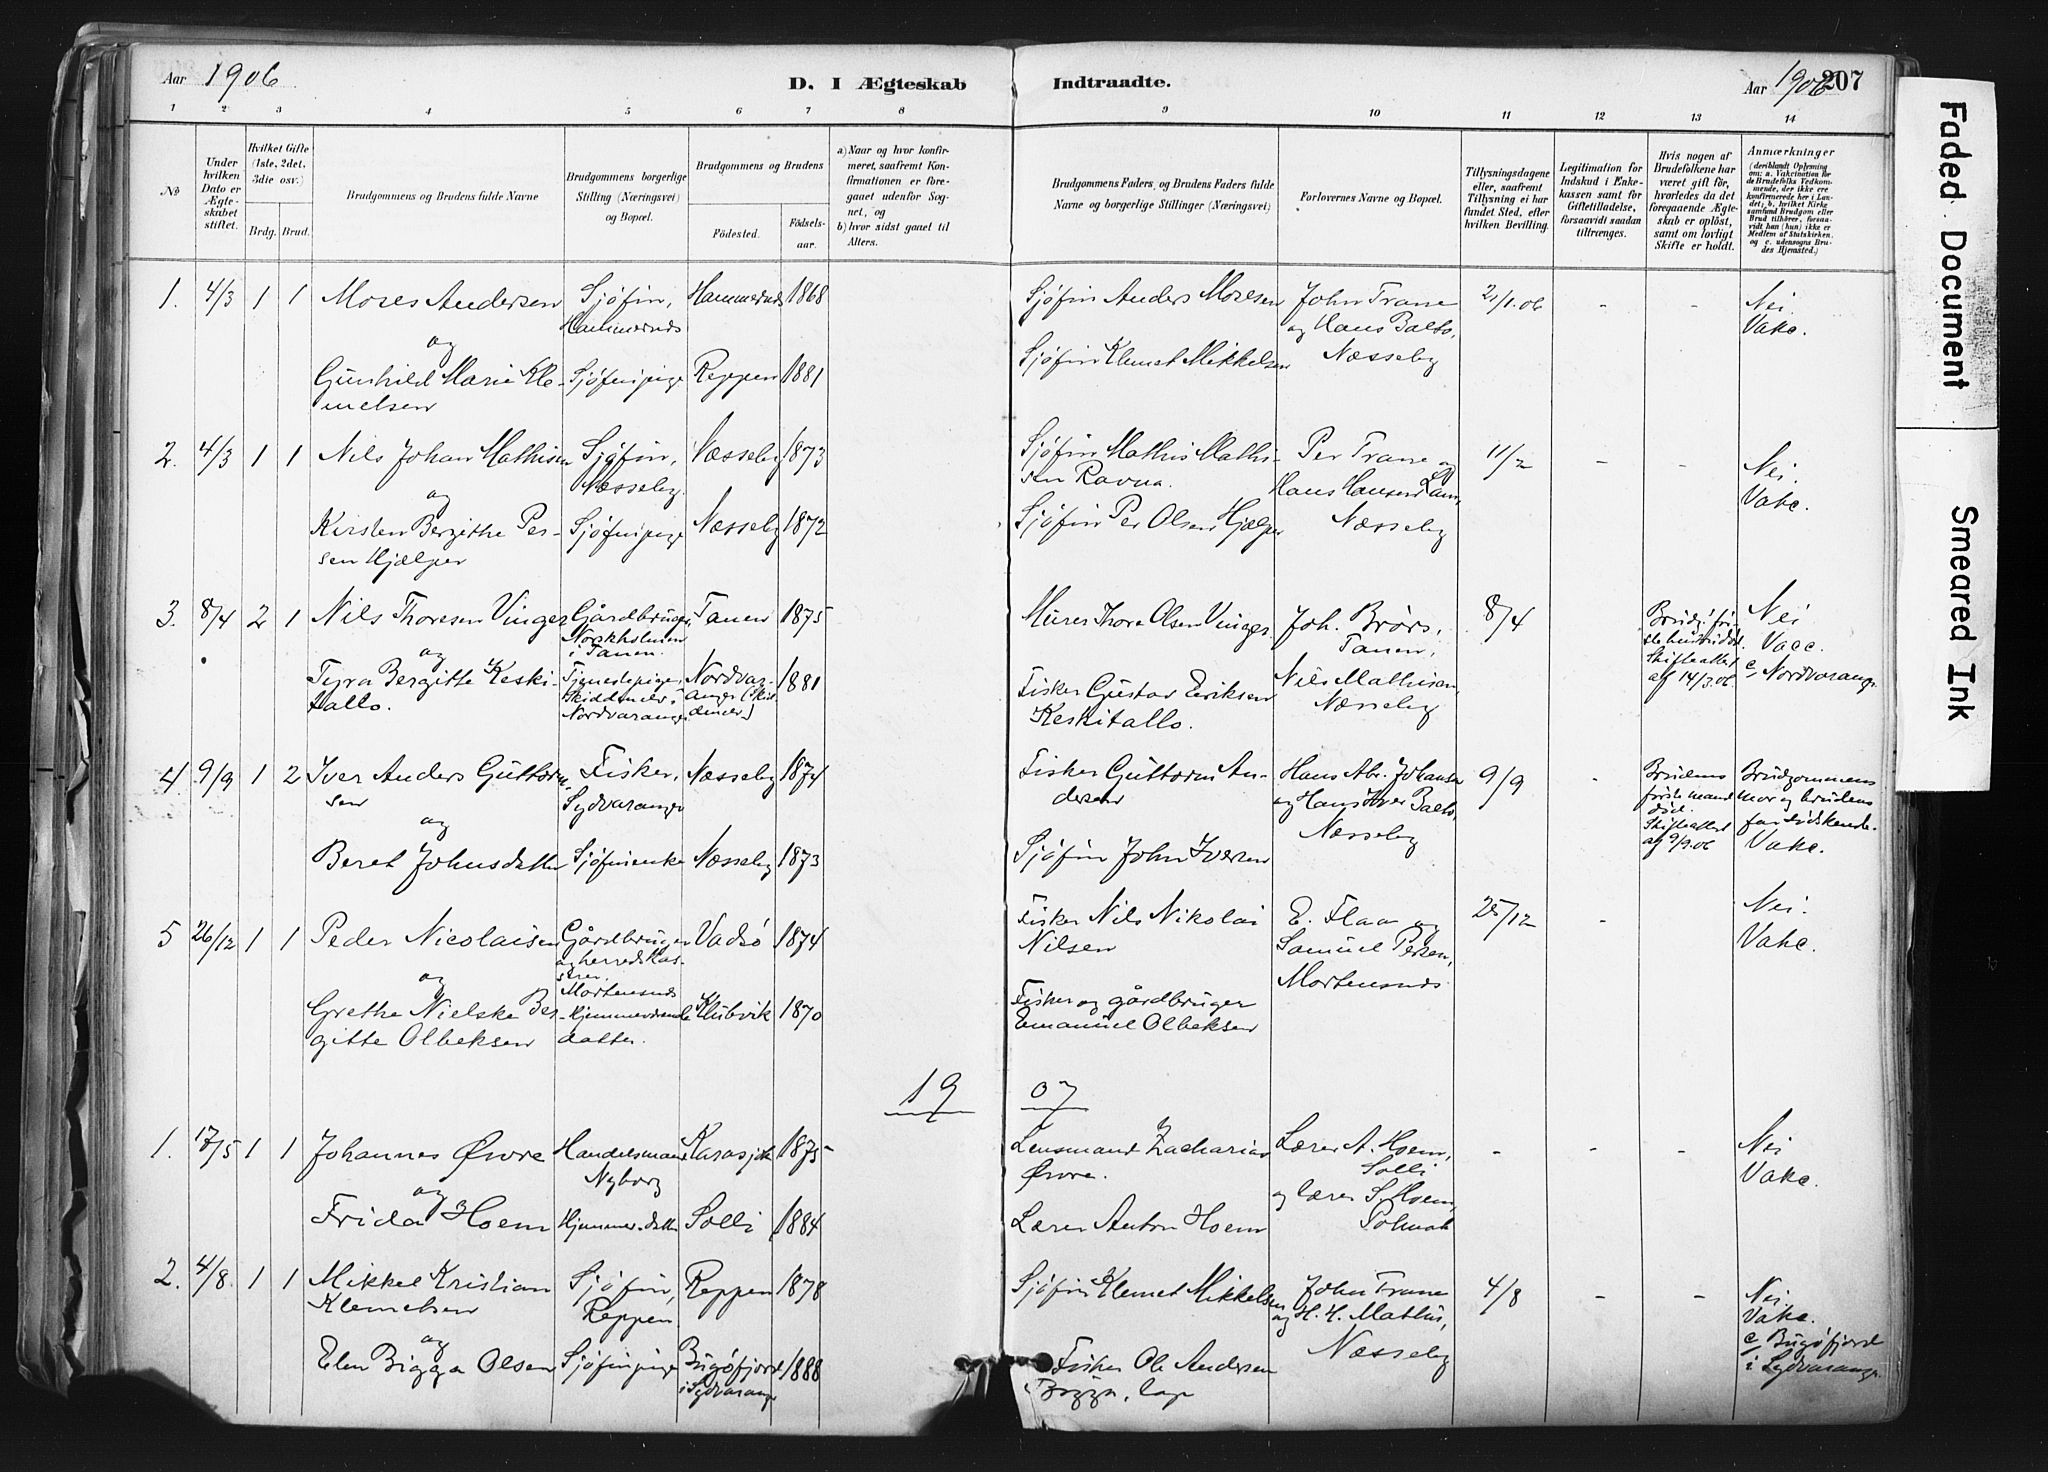 Aar 1906
D. I Ægteskab
Indtraadte.
Aar 1906
207
1 2 3 4 5 6 7 8 9 10 11 12 13 14
No
Under hvilken Dato er Ægteskabet stiftet.
Hvilket Gifte (1ste, 2det, 3die osv.)
Brdg. Brud.
Brudgommens og Brudens fulde Navne
Brudgommens borgerlige Stilling (Næringsvei) og Bopæl.
Brudgommens og Brudens
Födested.
Födselsaar.
a) Naar og hvor konfirmeret, saafremt Konfirmationen er foregaaet udenfor Sognet, og
b) hvor sidst gaaet til Alters.
Brudgommens Faders, og Brudens Faders fulde Navne og borgerlige Stillinger (Næringsvei)
Forlovernes Navne og Bopæl.
Tillysningsdagene eller, saafremt Tillysning ei har fundet Sted, efter hvilken Bevilling.
Legitimation for Indskud i Enkekassen samt for Giftetilladelse, forsaavidt saadan tiltrænges.
Hvis nogen af Brudefolkene har været gift för, hvorledes da det foregaaende Ægteskab er oplöst, samt om lovligt Skifte er holdt.
Anmærkninger
(deriblandt Oplysning om: a. Vakcination for de Brudefolks Vedkommende, der ikke ere konfirmerede her i Landet; b. hvilket Kirkesamfund Brudgom eller Brud tilhörer, forsaavidt han (hun) ikke er Medlem af Statskirken, og c. udensogns Brudes Hjemsted.)
1. 4/3 1 1 Moses Andersen Sjøfin, Hammernæs Hammernæs 1868 Sjøfin Anders Mosesen John Trane og Hans Balto, Næsseby 21/1.06 - - Nei. Vakc.
og
Gunhild Marie Klemetsen Sjøfinpige Reppen 1881 Sjøfin Klemet Mikkelsen
2. 4/3 1 1 Nils Johan Mathisen Sjøfin, Næsseby. Næsseby 1873 Sjøfin Mathis Mathisen Ravna. Per Trane og Hans Hansen Næsseby 11/2 - - Nei. Vakc.
og
Kirsten Bergithe Persen Hjælper Sjøfinpige Næsseby 1872 Sjøfin Per Olsen Hjælper
3. 8/4 2 1 Nils Thoresen Vinger Gårdbruger, Norskholmen i Tanen. Tanen 1875 Murer Thore Olsen Vinger. Joh. Brørs, Tanen, Nils Mathisen, Næsseby 8/4 Skifteattest af 14/3.06. Nei Vacc. c, Nordvaranger
og
Tyra Bergitte Keskitallo. Tjenestepige, Skiddenelv i Nordvaranger Nordvaranger (Skiddenelv) 1881 Fisker Gustav Eriksen Keskitallo.
4. 9/9 1 2 Iver Anders Guttormsen Fisker, Sydvaranger Næsseby 1874 Fisker Guttorm Andersen Hans Abr. Johansen og Hans Iver Balto, Næsseby 9/9 - Brudens første mand død. Skifteattest af 9/9.06 Brudgommens mor og brudens far sødskende. Vakc.
og
Beret Johnsdatter Sjøfinenke Næsseby 1873 Sjøfin John Iversen
5 26/12 1 1 Peder Nicolaisen Gårdbruger og herredskasserer, Mortensnæs Vadsø 1874 Fisker Nils Nikolai Nilsen E. Flaa og Samuel Persen, Mortensnæs 25/12 - Nei. Vakc.
og
Grethe Nielske Bergitte Olbeksen Hjemmeværende datter. Klubvik 1870 Fisker og gårdbruger Emanuel Olbeksen
19 07
1. 17/5 1 1 Johannes Øvre Handelsmand Nyborg Karasjok 1875 Lensmand Zacharias Øvre. Lærer A. Hoem, Solli og lærer S. Hoem, Polmak - - - Nei Vakc.
og
Frida Hoem Hjemmev. datter Solli 1884 Lærer Anton Hoem
2. 4/8. 1 1 Mikkel Kristian Klemetsen Sjøfin, Reppen Reppen 1878 Sjøfin Klemet Mikkelsen John Trane og H. H. Mathus, Næsseby 4/8 - - Nei Vakc. c, Bugøfjord i Sydvaranger.
og
Elen Bigga Olsen Sjøfinpige Bugøfjord i Sydvaranger 1888 Fisker Ole Andersen Bigga, lap
Faded Document
Smeared Ink